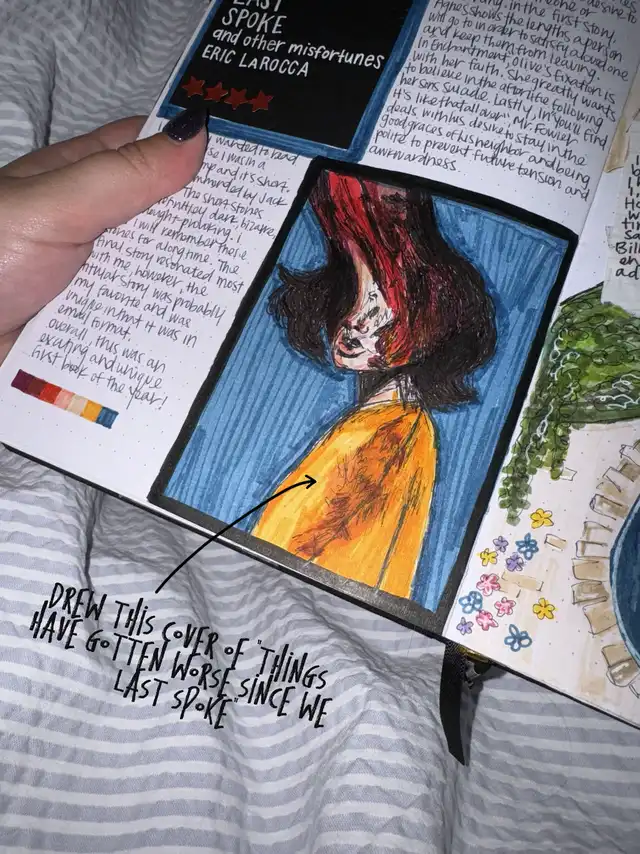 LAST
SPOKE
and other misfortunes
ERIC LAROCCA
in the first story,
Agnes shows the lengths a person
will go to in order to satisfy a loved one
and keep them from leaving.
In Enchantment, Olive's fixation is
with her faith. She greatly wants
to believe in the afterlife following
her sons suicide. Lastly, in You'll Find
it's like that all over, Mr. Fowler
deals with his desire to stay in the
good graces of his neighbor and being
polite to prevent future tension and
awkwardness.
wanted to read
I was in a
and it's short.
by Jack
The short stories
definitely dark, bizarre,
thought provoking. I
will remember these
stories for a long time. The
final story resonated most
with me, however, the
titular story was probably
my favorite and was
unique in that it was in
email format.
overall, this was an
exciting and unique
first book of the year!
DREW THIS COVER OF "THINGS
HAVE GOTTEN WORSE SINCE WE
LAST SPOKE"